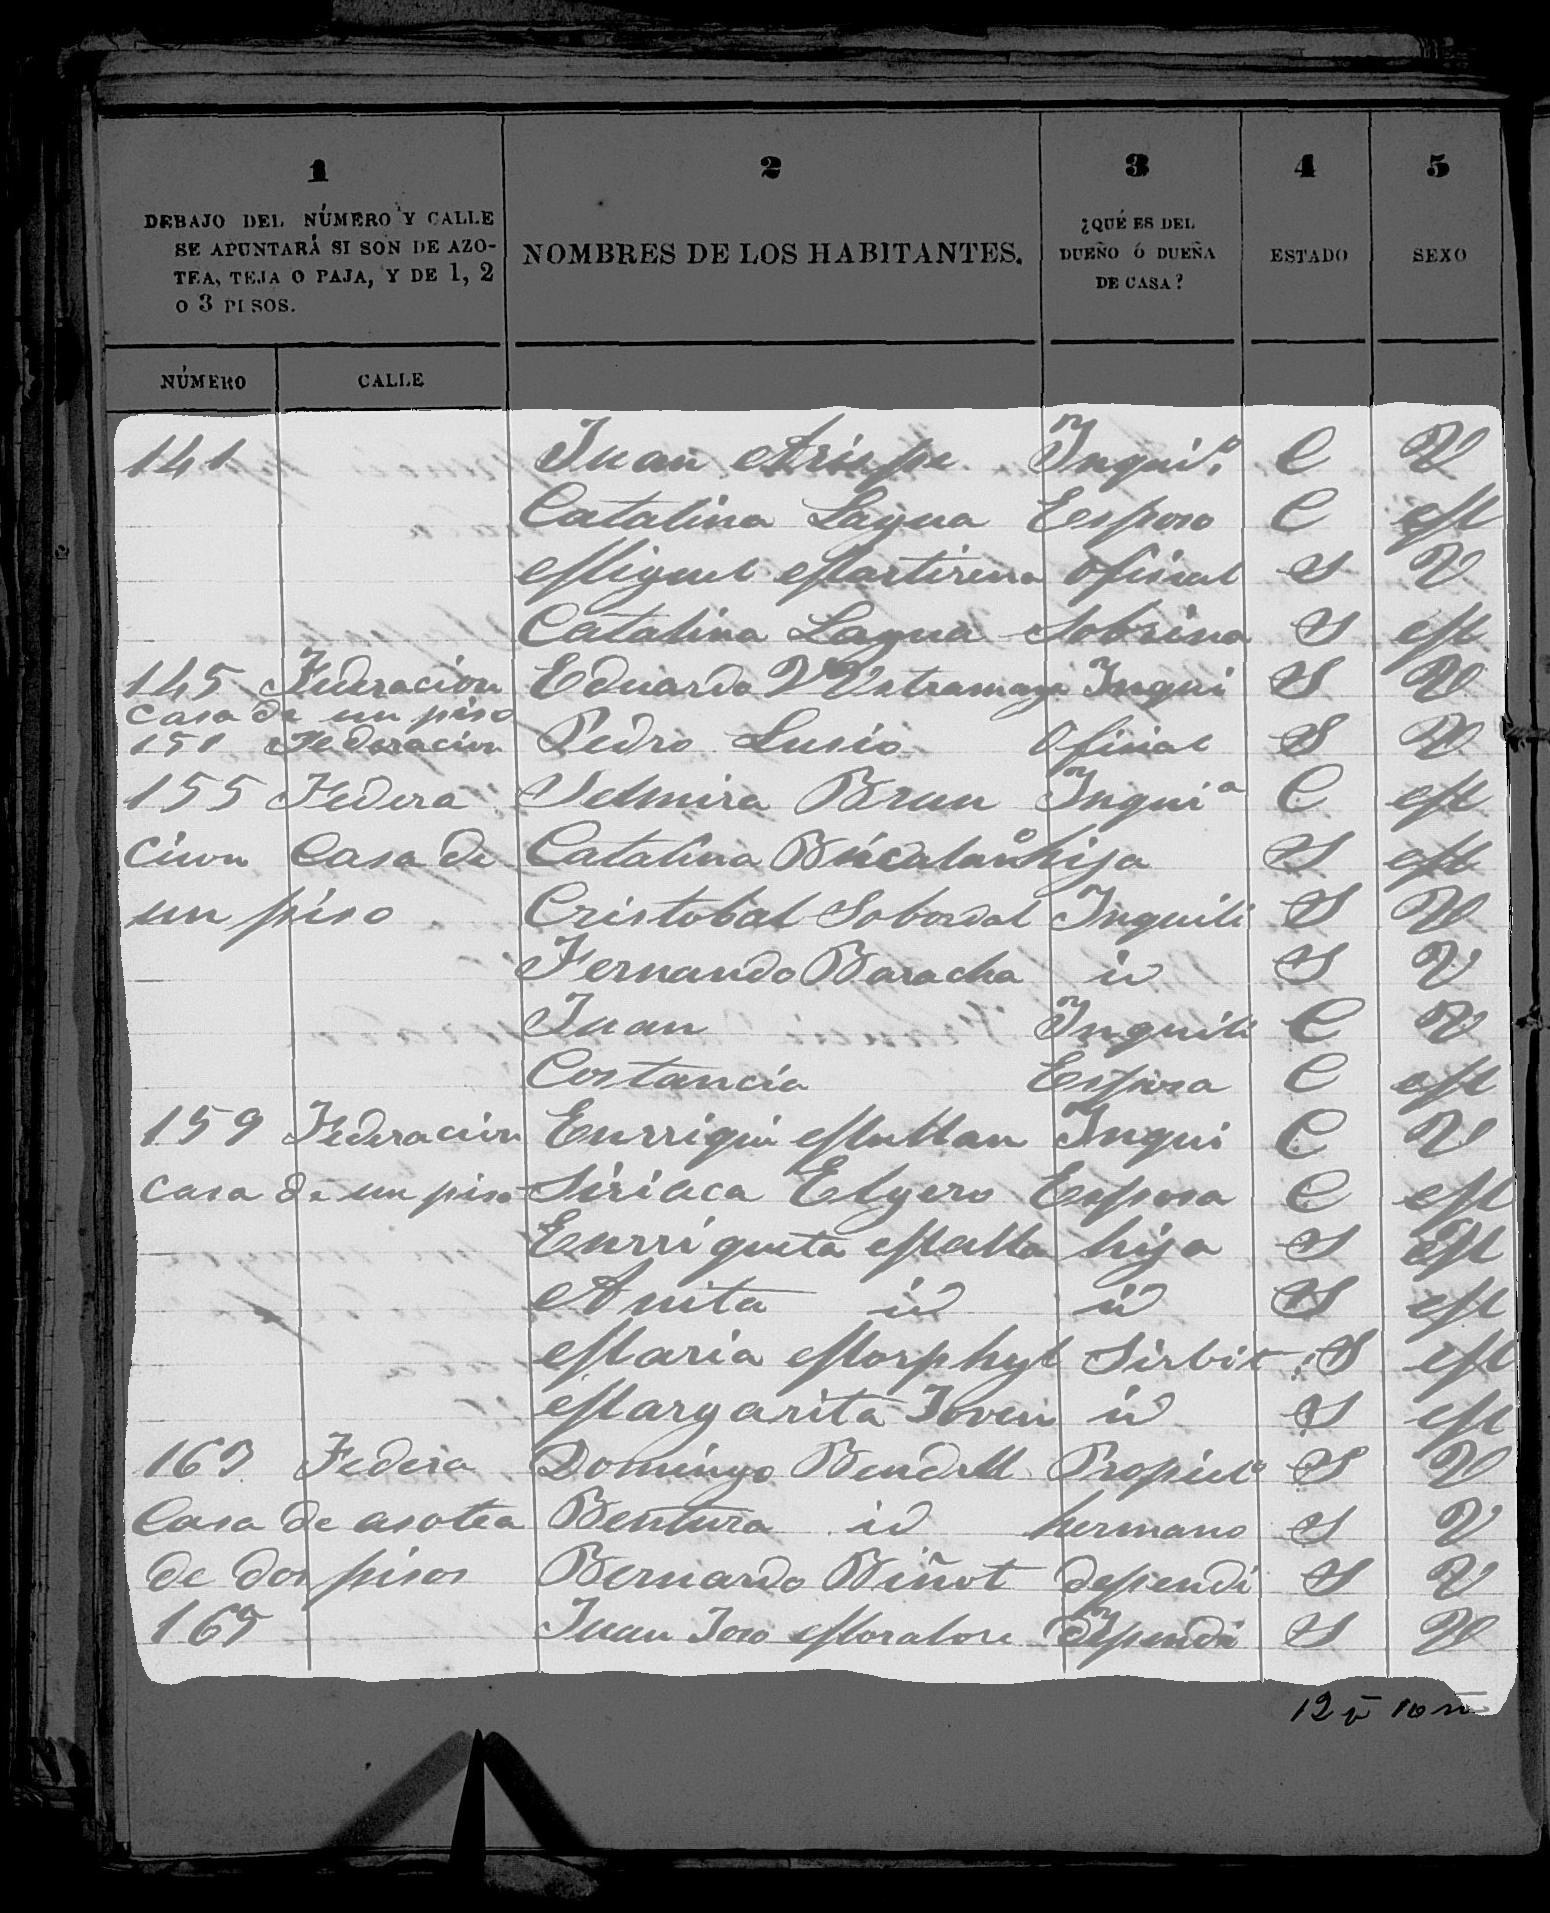 1 2 3 4 5
DEBAJO DEL NÚMERO Y CALLE
SE APUNTARÁ SI SON DE AZO-
TEA, TEJA O PAJA, Y DE 1, 2
O 3 PISOS.
NOMBRES DE LOS HABITANTES.
¿QUÉ ES DEL
DUEÑO Ó DUEÑA
DE CASA?
ESTADO
SEXO
NÚMERO CALLE
141 Juan Arispe Inqui.º C V
Catalina Lagua Esposo C M
Miguel Martirena Oficial S V
Catalina Lagua Sobrina S M
145 Federacion Eduardo Inqui S V
casa de un piso
151 Federacion Pedro Lusio Oficial S V
155 Federa Selmira Brun Inquiª C M
cion Casa de Catalina hija S M
un piso Cristobal Sobordal Inquili S V
Fernando Baracha id S V
Juan Inquili C V
Costancia Esposa C M
159 Federacion Enrriqui Inqui C V
casa de un piso Siriaca Elgero Esposa C M
Enrriqueta hija S M
Anita id id S M
Maria Morphyl Sirbit S M
Margarita Joven id S M
163 Federa Domingo Bendall Propietº S V
Casa de asotea Bentura id hermano S V
de dos pisos Bernardo Biñot dependi S V
165 Juan Jose dependi S V
12 v 10 m